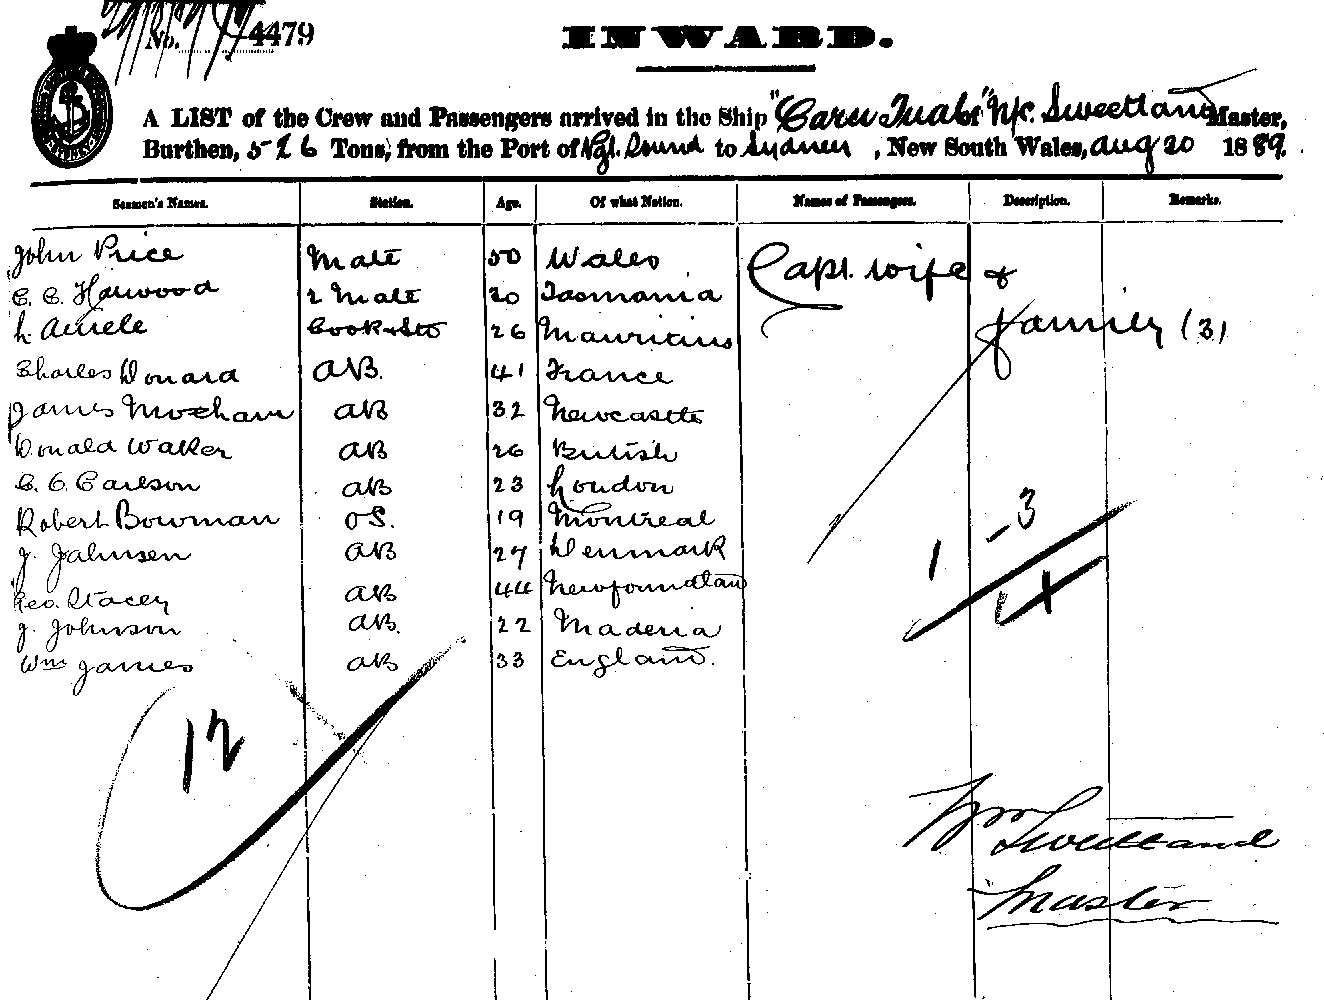 No. 4479
INWARD.
A LIST of the Crew and Passengers arrived in the Ship "Caru Tual" of Wm. Sweetland Master,
Burthen, 526 Tons, from the Port of Sound to Sydney, New South Wales, Aug 20 1889.
Seamen's Names. Station. Age. Of what Nation. Names of Passengers. Description. Remarks.
John Price Mate 50 Wales Capt. wife &
C. C. Harwood 2 Mate 20 Tasmania
Cook & Std 26 Mauritius family (3)
Charles Donard AB. 41 France
James Moxham AB 32 Newcastle
Donald Walker AB 26 British
C. C. Carlson AB 23 London
Robert Bowman OS. 19 Montreal
J. Jahnsen AB 27 Denmark
Geo. Stacey AB 44 Newfoundland
J. Johnson AB. 22 Maderia
Wm James AB 33 England.
1 - 3
4
12
Wm Sweetland
Master